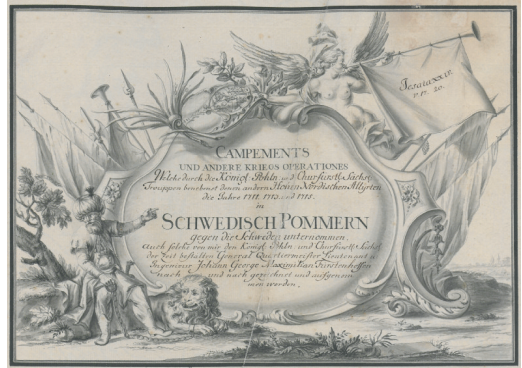 Jesaia XXIX
CAMPEMENTS
UND ANDERE KRIEGS OPERATIONES
Welche durch die Königl. Pohln. und Churfürstl. Sächs.
Trouppen benebenst denen andern Hohen Nordischen Alliirten
die Jahre 1711. 1713. und 1715.
in
SCHWEDISCH POMMERN
gegen die Schweden unternommen,
Auch solche von mir den Königl. Pohln. und Churfürstl. Sächs.
der Zeit bestalten General Quartiermeister Lieutenant u.
Ingenieur Johann George Maximilian Fürstenhoffen
nach und nach gezeichnet und aufgenom
men worden.